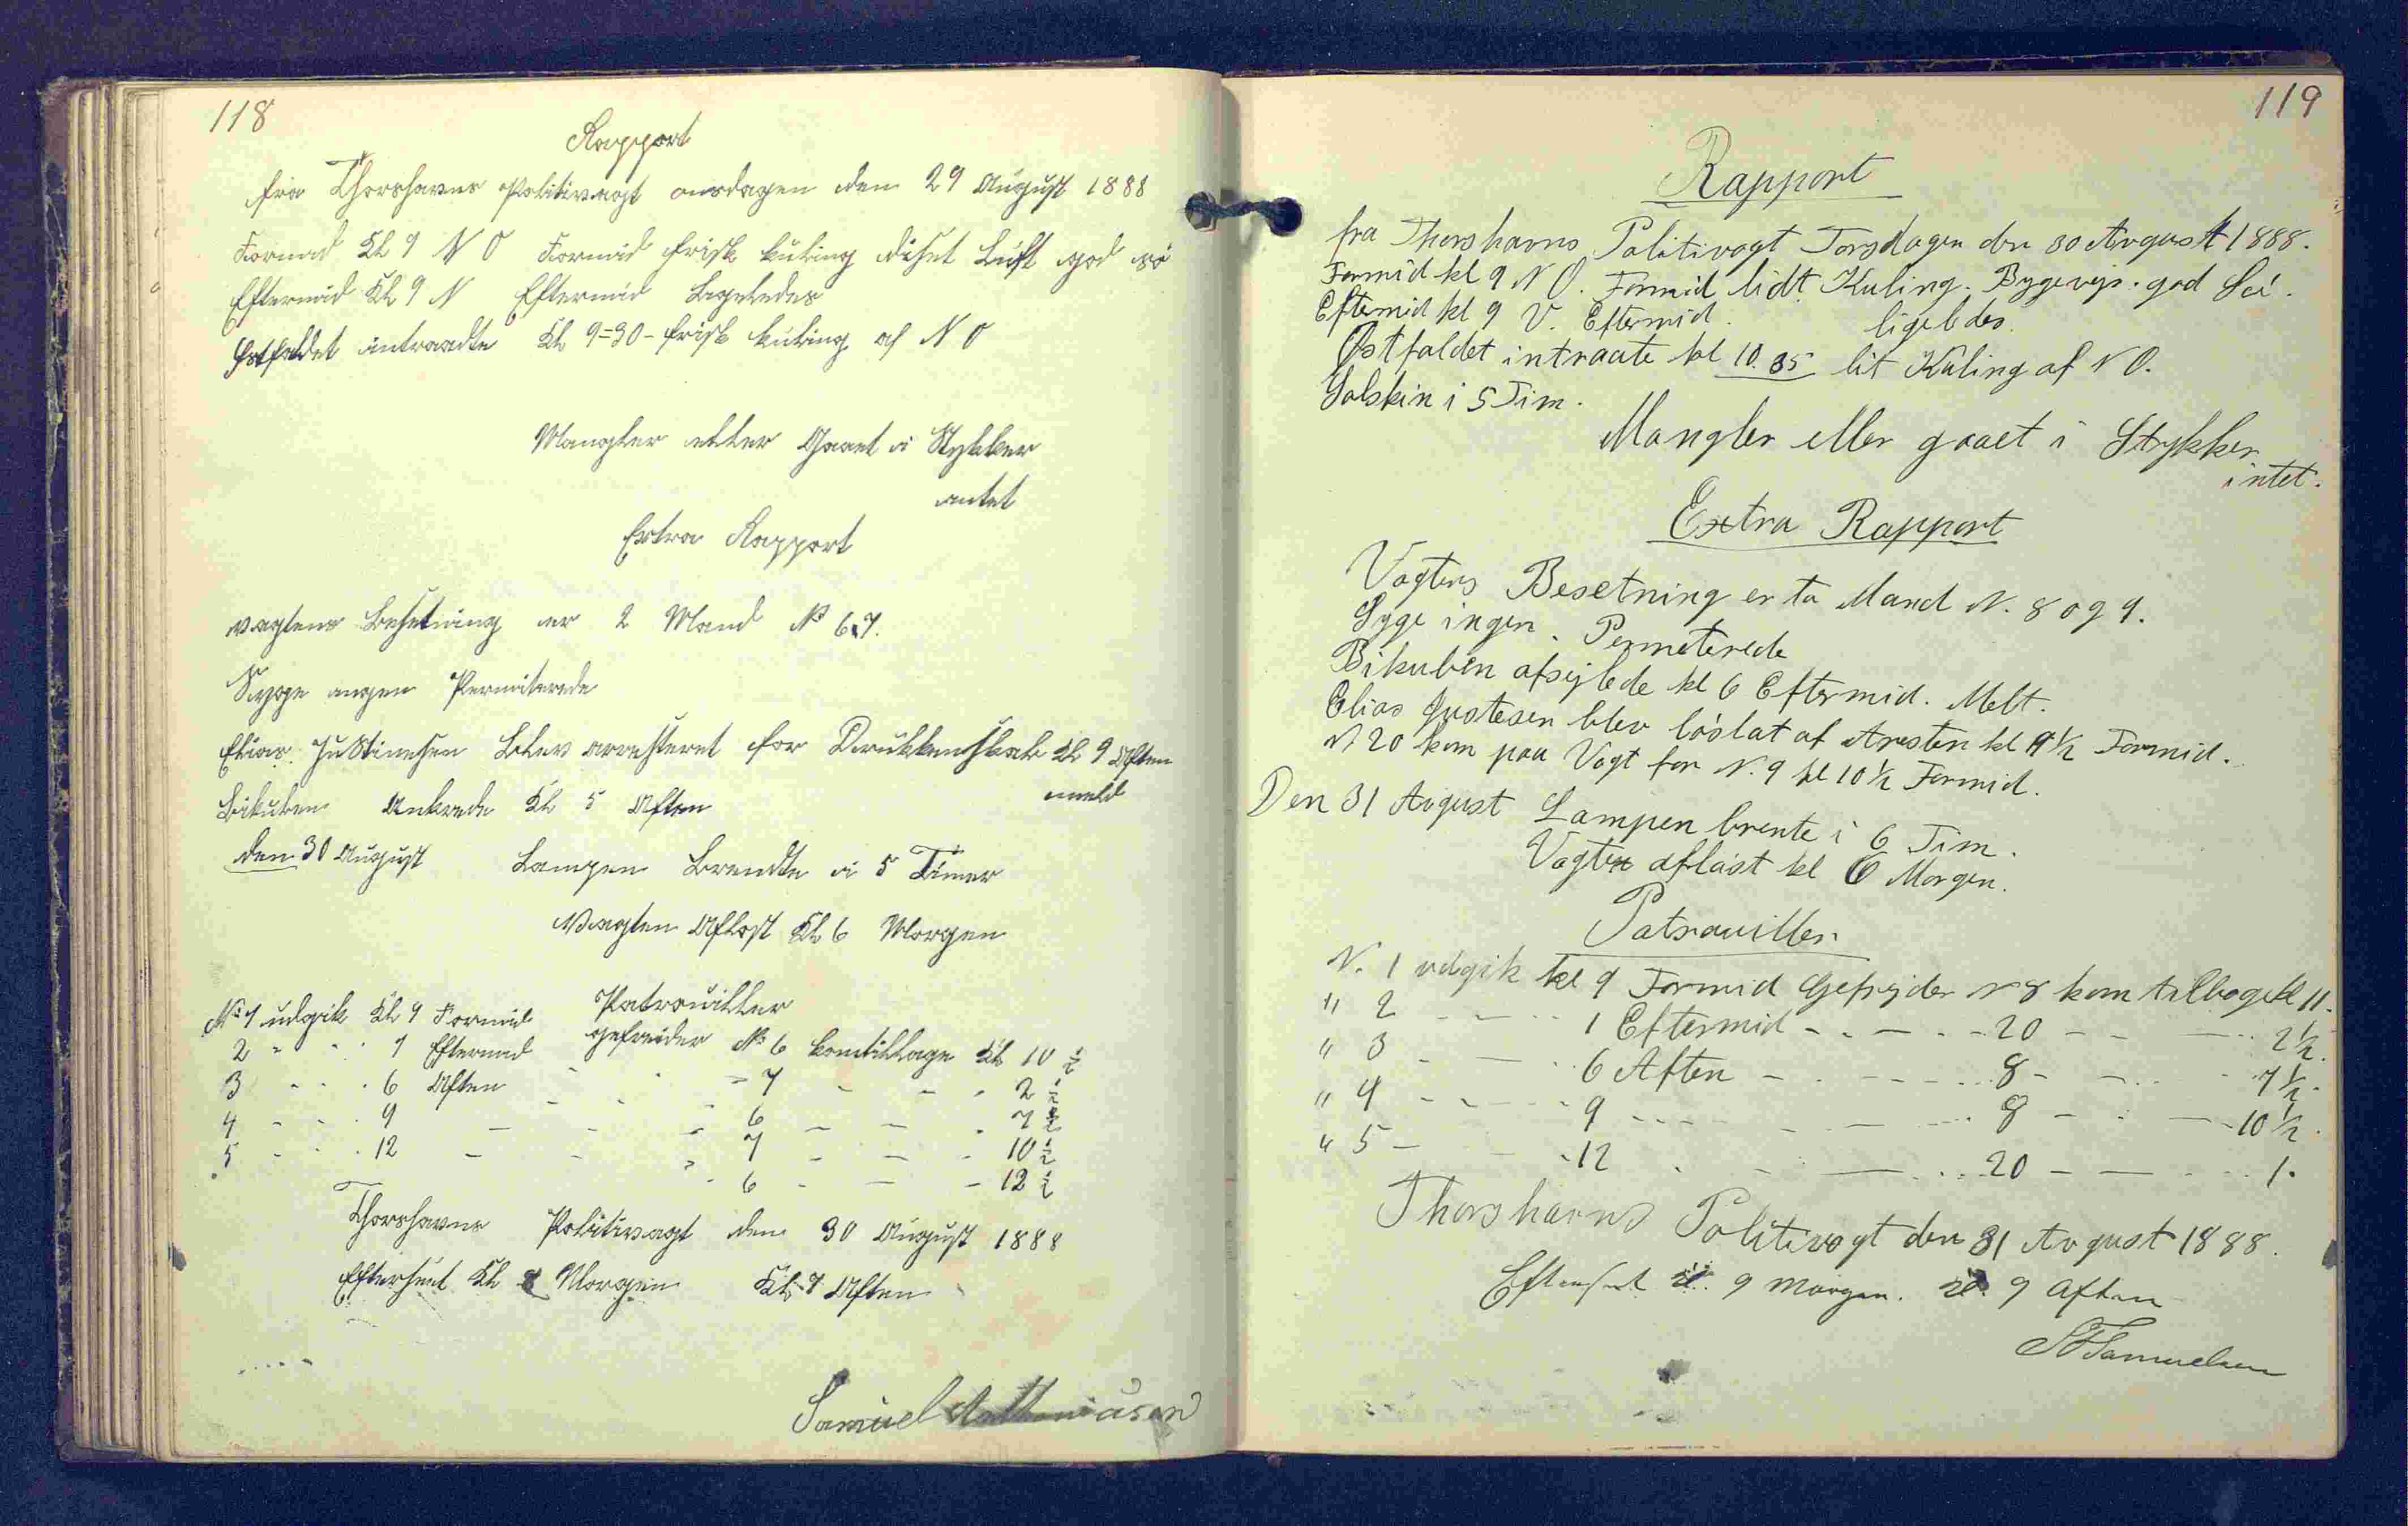 118
Rapport
fra Thorshavns Politivagt onsdagen den 29 August 1888
Formid Kl 9 N O Formid frisk kuling diset Luft god sö
Eftermid Kl 9 N Eftermid Ligeledes
Østfaldet intraadte Kl 9=30 - frisk kuling af N O
Mangler eller Gaaet i Stykker
intet
Extra Rapport
vagtens Besetning er 2 Mand No 6.7.
Syge ingen Permiterede
Elias Justinesen blev arresteret for Drukkenskab Kl 9 Aften
meld
Bikuben Ankrede Kl 5 Aften
den 30 August Lampen Brendte i 5 Timer
Vagten Aflöst Kl 6 Morgen
Patrouiller
No 1 udgik Kl 9 Formid gefreider No 6 komtilbage Kl 10 ½
2 " " " 1 Eftermid - - - 7 - - - 2 ½
3 - - - 6 Aften - - - 6 - - - 7 ½
4 - - - 9 - - - 7 - - - 10 ½
5 - - - 12 - - - 6 - - - 12 ½
Thorshavns Politivagt den 30 August 1888
Efterseet Kl 8 Morgen Kl 7 Aften
Samuel
119
Rapport
fra Thorshavns Politivagt Torsdagen den 30 Avgust 1888.
Formid kl 9 N O. Formid lidt Kuling. Bygevejr. god Sö.
Eftermid kl 9 V. Eftermid. ligeledes.
Østfaldet intraate kl 10.35 lit Kuling af N O.
Solskin i 5 Tim.
Mangler eller gaaet i Strykker
intet.
Extra Rapport
Vagtens Besetning er to Mand N. 8 og 9.
Syge ingen. Permeterede
Bikuben afsejlede kl 6 Eftermid. Melt.
Elias Justesen blev löslat af Aresten kl 9½ Formid.
N 20 kom paa Vagt for N. 9 kl 10½ Formid.
Den 31 Avgust Lampen brente i 6 Tim.
Vagten aflöst kl 6 Morgen.
Patrouiller
N. 1 udgik kl 9 Formid Gefrejder N 8 kom tilbage kl 11.
" 2 - - - 1 Eftermid - - - 20 - - - 2½.
" 3 - - - 6 Aften - - - 8 - - - 7½.
" 4 - - - 9 - - - 8 - - - 10½.
" 5 - - - 12 - - - 20 - - - 1.
Thorshavns Politivagt den 31 Avgust 1888.
Efterseet kl. 9 Morgen. kl. 9 Aften
Samuelsen